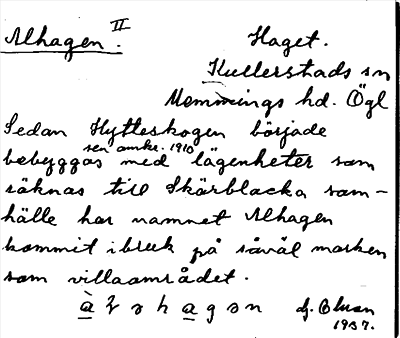 Alhagen. II Haget.
Kullerstads sn
Memmings hd. Ögl
Sedan Hytteskogen började
sen omkr. 1910
bebyggas med lägenheter som
räknas till Skärblacka sam-
hälle har namnet Alhagen
kommit i bruk på såväl marken
som villaområdet.
1937.